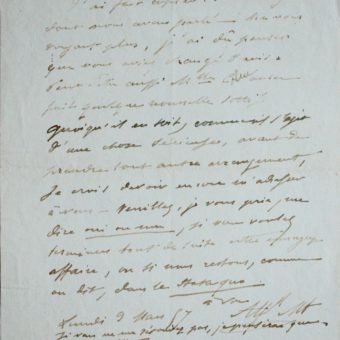 j'ai fait
dont nous avons parlé. Ne vous
voyant plus, j'ai dû penser
que vous aviez changé d'avis.
aussi
fait quelque nouvelle
Quoiqu'il en soit, comme il s'agit
d'une chose sérieuse, avant de
prendre tout autre arrangement,
Je crois devoir encore m'adresser
à vous. Veuillez, je vous prie, me
dire oui ou non, si vous voulez
terminer tout de suite cette
affaire, ou si nous restons, comme
on dit, dans le statu quo
à vous
Lundi 9 Mars 57
Si vous ne me répondez pas, je penserai que